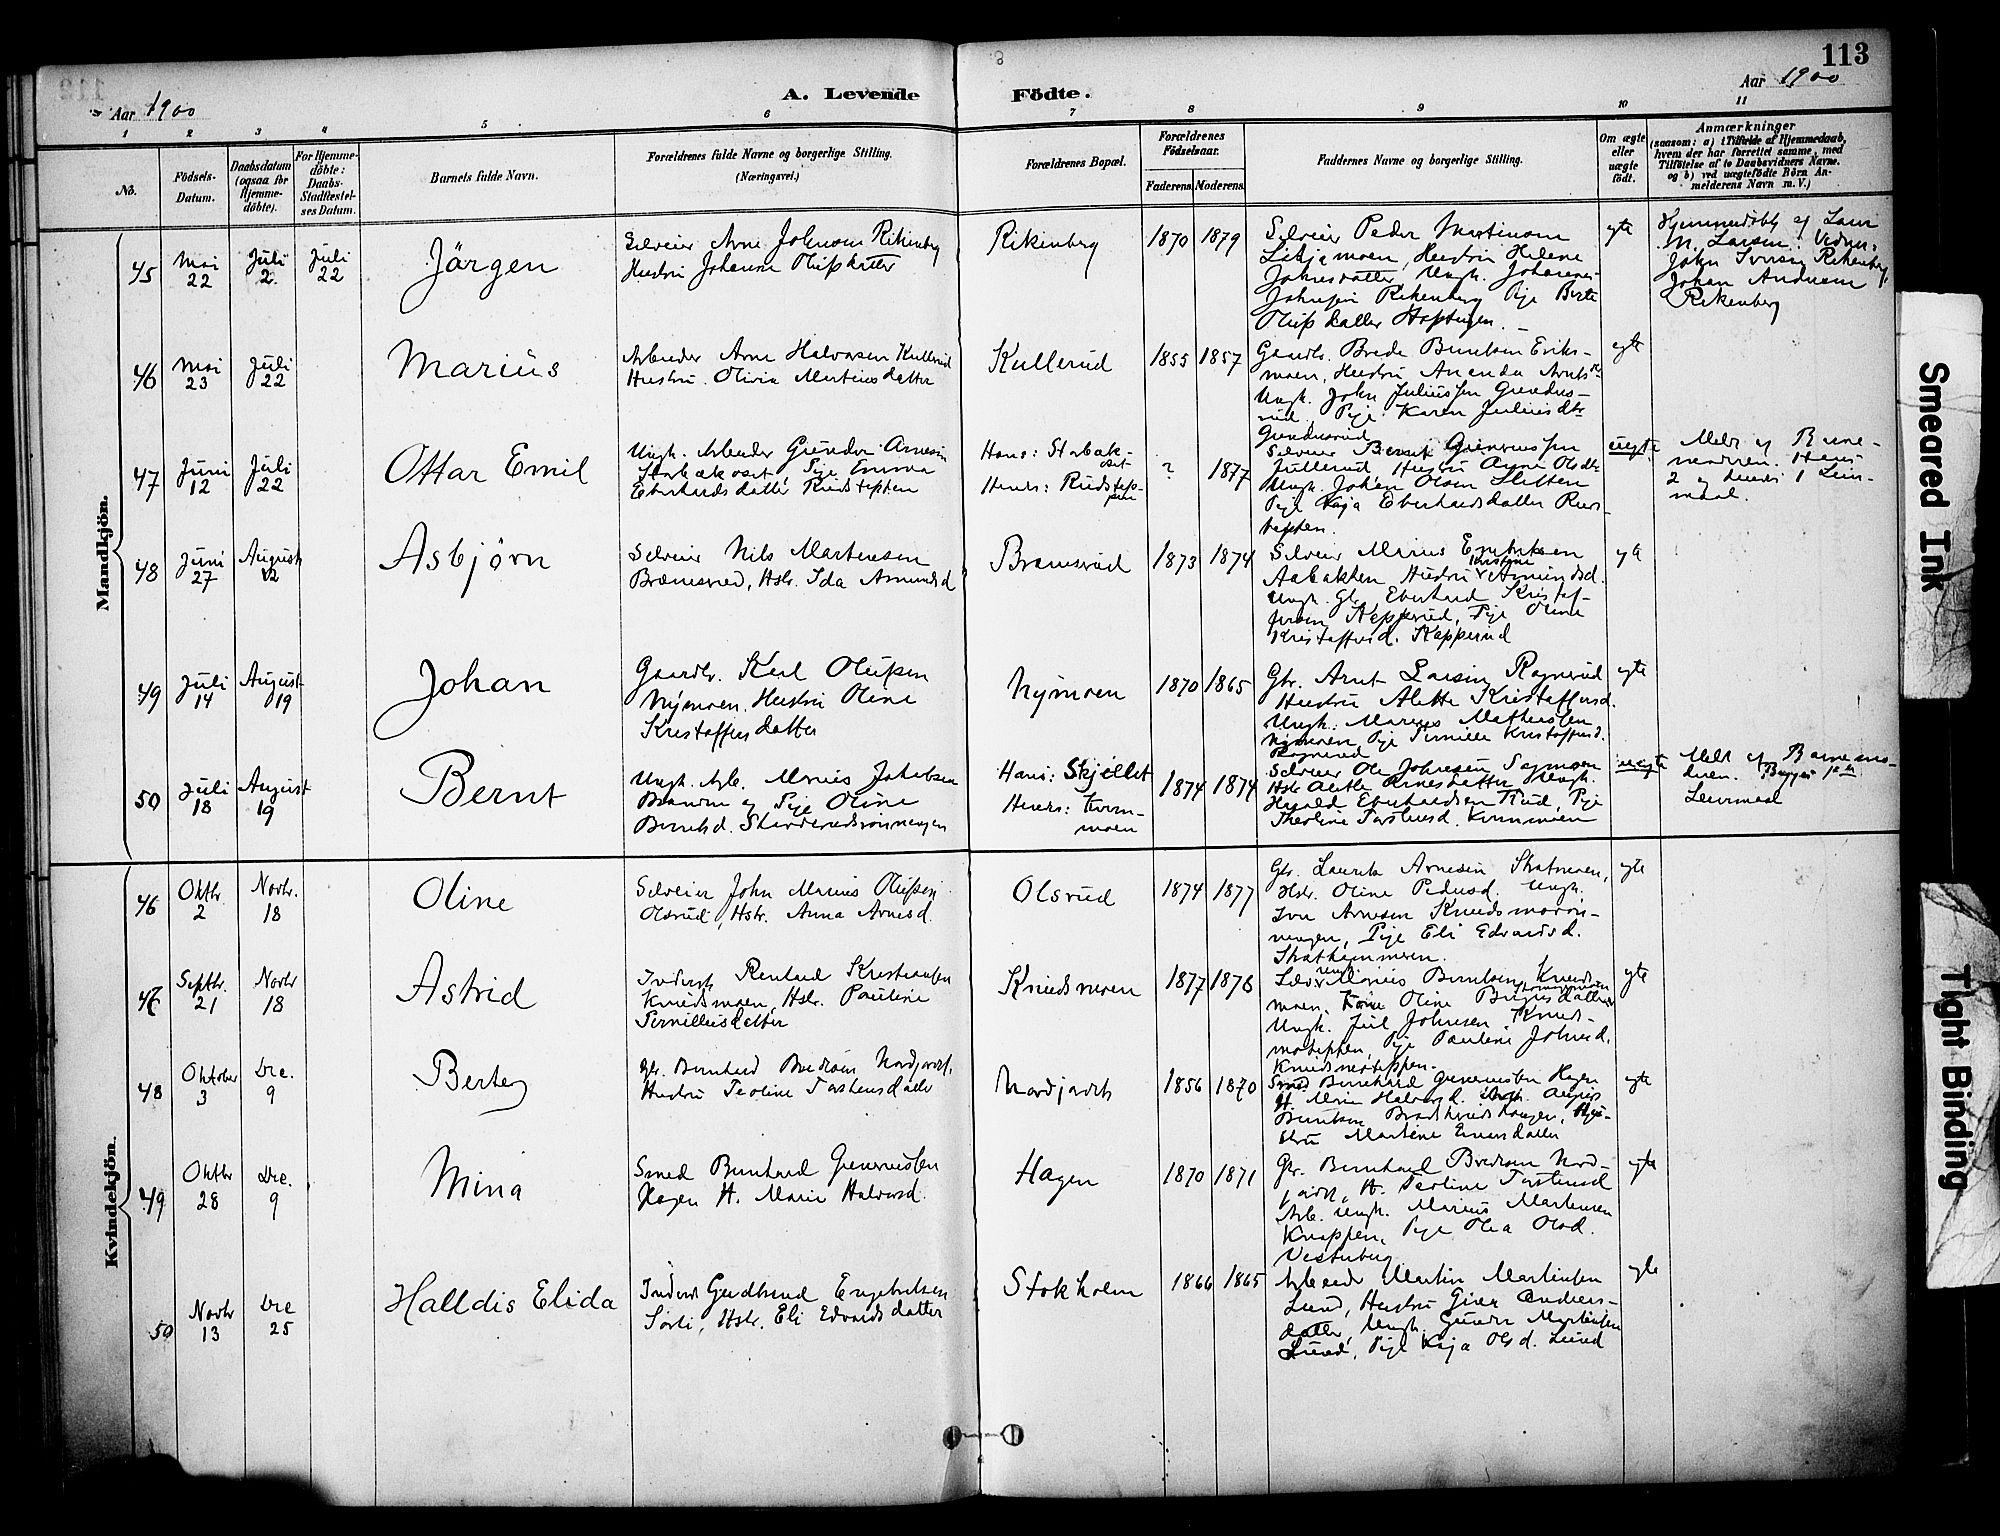 113
Aar 1900
A. Levende Födte.
Aar 1900
1 2 3 4 5 6 7 8 9 10 11
No.
Födsels-Datum.
Daabsdatum (ogsaa for Hjemme-döbte).
For Hjemme-döbte: Daabs-Stadfæstel-ses Datum.
Barnets fulde Navn.
Forældrenes fulde Navne og borgerlige Stilling. (Næringsvei.)
Forældrenes Bopæl.
Forældrenes Födselsaar.
Faderens. Moderens.
Faddernes Navne og borgerlige Stilling.
Om ægte eller uægte födt.
Anmærkninger
(saasom: a) i Tilfælde af Hjemmedaab,
hvem der har forrettet samme, med
Tilföielse af to Daabsvidners Navne.
og b) ved uægtefödte Börn An-
melderens Navn m. V.)
Mandkjön.
45 Mai 22 Juli 2. Juli 22 Jörgen
Selveier Arne Johnsen Rikenberg
Hustru Johanne Olufsdatter
Rikenberg 1870 1879
Selveier Peder Martinsen
Hustru Helene
Johnsdatter, Ungk. Johannes
Johnsen Rikenberg Pige Berte
Olufsdatter
ægte
Hjemmedöbt af Lars
M. Larsen. Vidner:
John Iversen Rikenberg
Johan Andersen
Rikenberg
46 Mai 23 Juli 22 Marius
Arbeider Arne Halvorsen Kullerud
Hustru Olivia Martinusdatter
Kullerud 1855 1857
Gaardbr. Brede Berntsen Eriks-
moen, Hustru Ananda
Ungk. John Juliussen Grendes-
rud, Pige Karen Juliusdtr
Grendesrud
ægte
47 Juni 12 Juli 22 Ottar Emil
Ungk. Arbeider Gunder Arnesen
Storbækvset Pige Emma
Eberhardsdatter Rudsteppen
Hans: Storbæk-
vset
Hendes: Rudstep-
pen
? 1877
Selveier Bernt
Hustru Agne Olsdtr
Ungk. Johan Olsen Sletten
Pige Kaja Eberhardsdatter Ruds-
teppen.
uægte
Meldt af Barne-
moderen. Hans
2 og hendes 1 Leier-
maal.
48 Juni 27 August 12 Asbjørn
Selveier Nils Martinsen
Brænsrud, Hstr. Ida Amundsd
Brænsrud 1873 1874
Selveier Marius Engebretsen
Aabakken Hustru Kristine Amundsd.
Ungk. Gbr. Eberhard Kristof-
fersen Kopperud, Pige Oline
Kristoffersd. Kopperud
ægte
49 Juli 14 August 19 Johan
Gaardbr. Karl Olufsen
Nymoen. Hustru Oline
Kristoffersdatter
Nymoen 1870 1865
Gbr. Arnt Larsen Rognerud
Hustru Alette Kristoffersd.
Ungk. Marius Mathisen
Nymoen Pige Pernille Kristoffersd.
Rognerud
ægte
50 Juli 18 August 19 Bernt
Ungk. Arb. Marius Jakobsen
og Pige Oline
Berntsd.
Hans: Skjellet
Hendes: Kvern-
moen
1874 1874
Selveier Ole Johnsen
Hstr Alette Arnesdatter Ungk.
Harald Eberhardsen Rud, Pige
Theoline Torstensd. Kvernmoen
uægte
Meldt af Barnemo-
deren. Begges 1ste
Leiermaal
Kvindekjön.
46 Oktbr. 2 Novbr. 18 Oline
Selveier John Marius Olufsen
Olsrud, Hstr. Anna Arnesd.
Olsrud 1874 1877
Gbr. Laurits Arnesen
Hstr. Oline Pedersd. Ungk.
Iver Arnesen Knudsmoron-
ningen, Pige Eli Edvardsd.
ægte
47 Septbr. 21 Novbr 18 Astrid
Inderst Renhard Kristiansen
Knudsmoen, Hstr. Pauline
Pernilliusdatter
Knudsmoen 1877 1878
Marius Berntsen Knuds-
moen, Kone Oline
Ungk. Juul Johnsen Knuds-
moteppen, Pige Pauline Johnsd.
Knudsmoteppen.
ægte
48 Oktober 3 Dec. 9 Berte
Gbr. Bernhard Bredesen Nordjordet,
Hustru Teoline Torstensdatter
Nordjordet 1856 1870
Smed Bernhard Gunerussen Hagen
H. Marie Halvorsd. Ungk. August
Berntsen
Martine Enersdatter
ægte
49 Oktbr 28 Dec. 9 Mina
Smed Bernhard Gunerussen
Hagen H. Marie Halvorsd.
Hagen 1870 1871
Gbr. Bernhard Bredesen Nord-
jordet, H. Teoline Torstensd
Arb. Ungk. Marius Martinsen
Knappen, Pige Olea Olsd.
Vesterberg
ægte
50 Novbr 13 Dec 25 Halldis Elida
Inderst Gudbrand Engebretsen
Sörli, Hstr. Eli Edvardsdatter
Stokholm 1866 1865
Arbeider Martin Martinsen
Lund, Hustru Anders-
datter, Ungk. Gunder Martinsen
Lund, Pige Kaja Olsd. Lund
ægte
Smeared Ink
Tight Binding